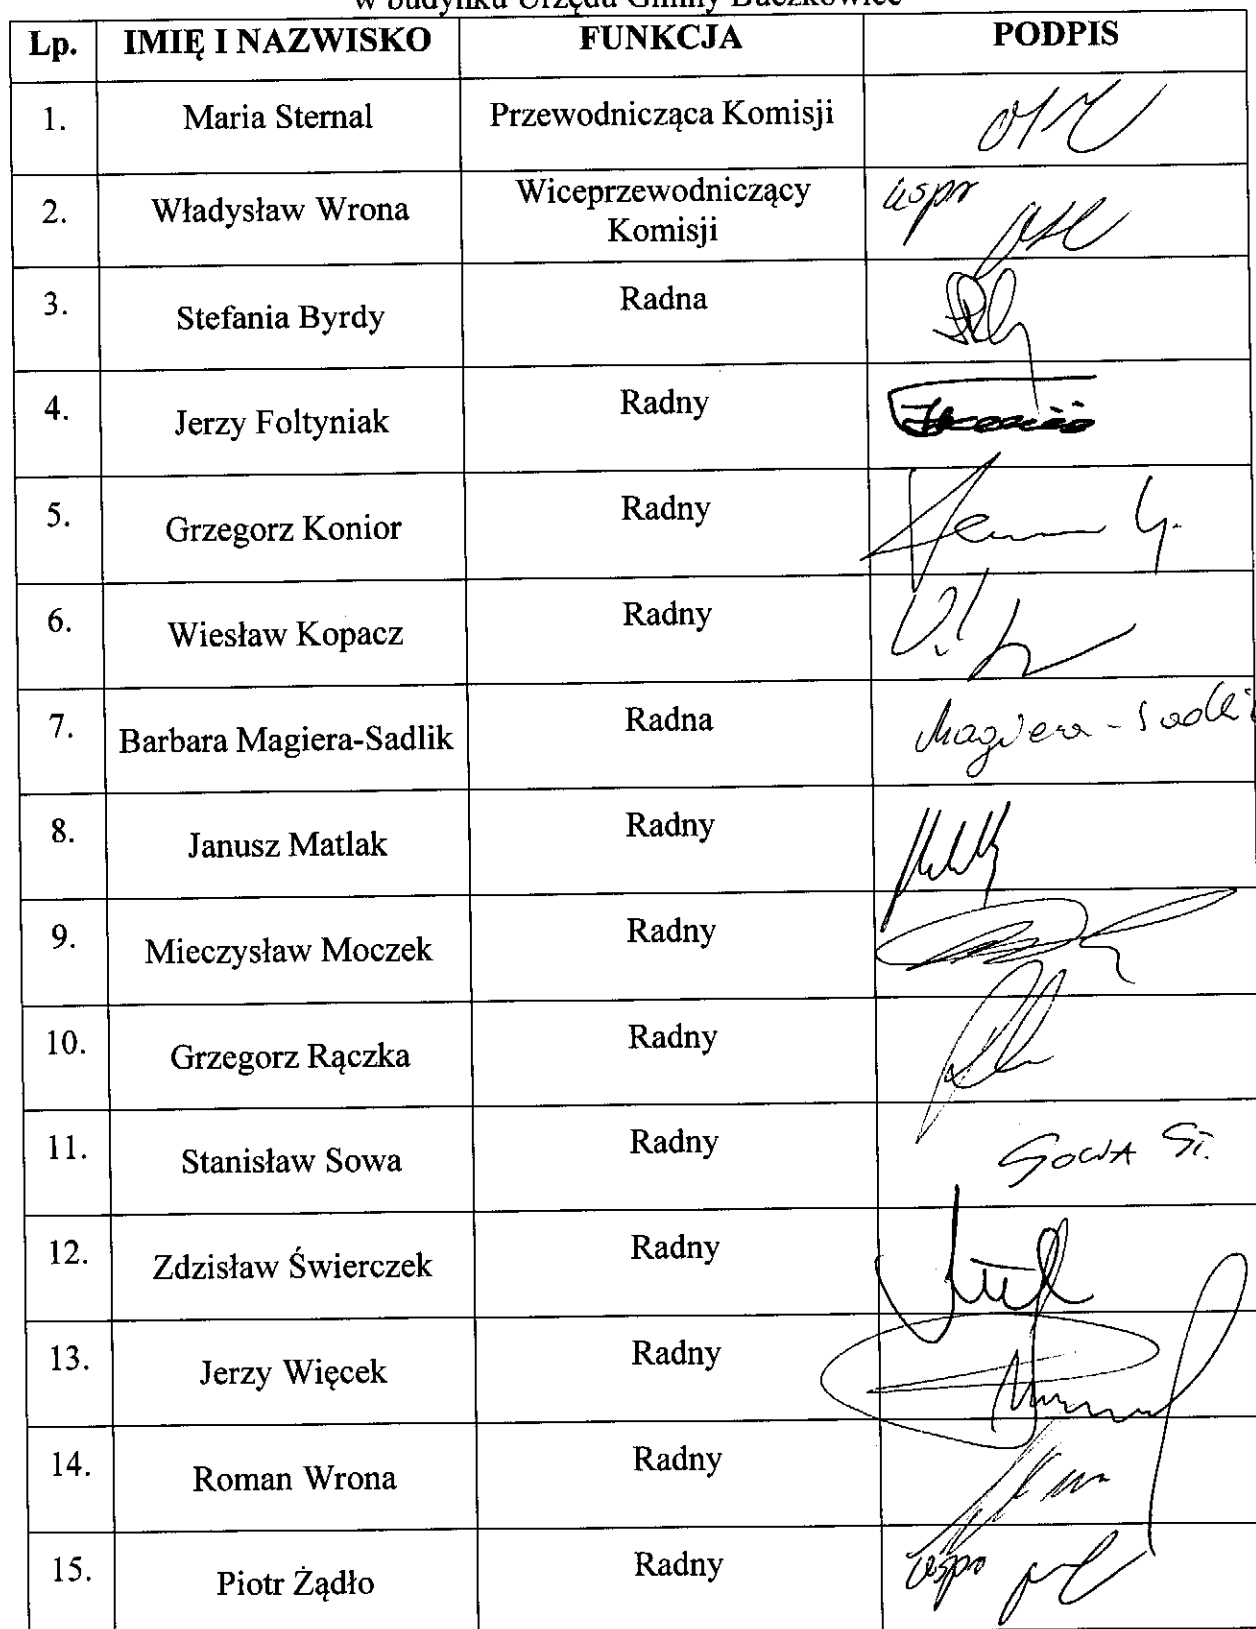 w budynku Urzędu Gminy Buczkowice
Lp. IMIĘ I NAZWISKO FUNKCJA PODPIS
1. Maria Sternal Przewodnicząca Komisji
2. Władysław Wrona Wiceprzewodniczący Komisji uspr
3. Stefania Byrdy Radna
4. Jerzy Foltyniak Radny
5. Grzegorz Konior Radny
6. Wiesław Kopacz Radny
7. Barbara Magiera-Sadlik Radna Magiera-Sadli
8. Janusz Matlak Radny
9. Mieczysław Moczek Radny
10. Grzegorz Rączka Radny
11. Stanisław Sowa Radny SOWA ST.
12. Zdzisław Świerczek Radny
13. Jerzy Więcek Radny
14. Roman Wrona Radny
15. Piotr Żądło Radny uspr